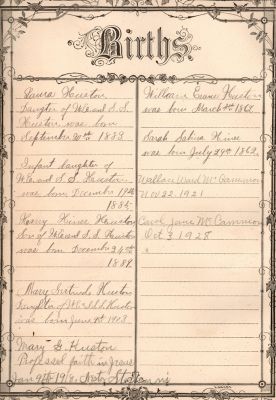 Births.
Laura Huston
Daughter of W.E. and S.S.
Huston was born
September 20th 1883
Infant daughter of
W.E. and S.S. Huston
was born December
1885
Harry Hines Huston
Son of W.E. and S.S. Huston
was born December 24th
1889
Mary Gertrude Huston
Daughter of W.E. S.S. Huston
was born June 1903
Mary G. Huston
Professed faith in Jesus
Jan 9th 1918
William Evans Huston
was born March 8th
Sarah Salina Hines
was born July 29th 1862
Wallace Ward McCammon
Nov. 22. 1921
Carol Jane McCammon
Oct 3 1928